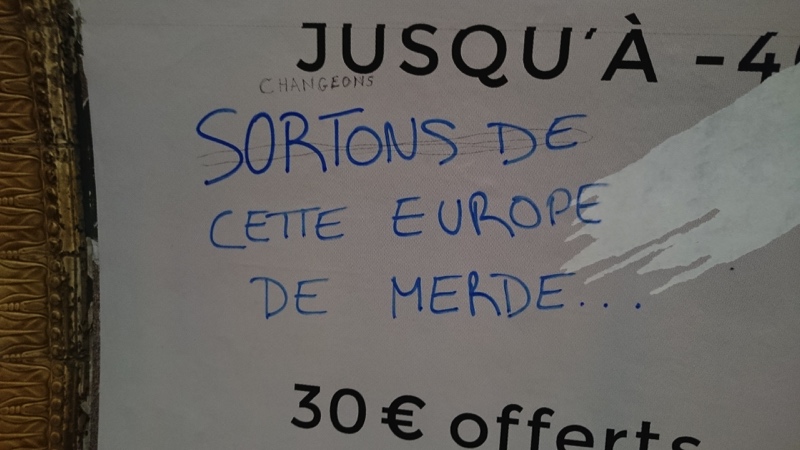 JUSQU'À -4
CHANGEONS
SORTONS DE
CETTE EUROPE
DE MERDE...
30€ offerts